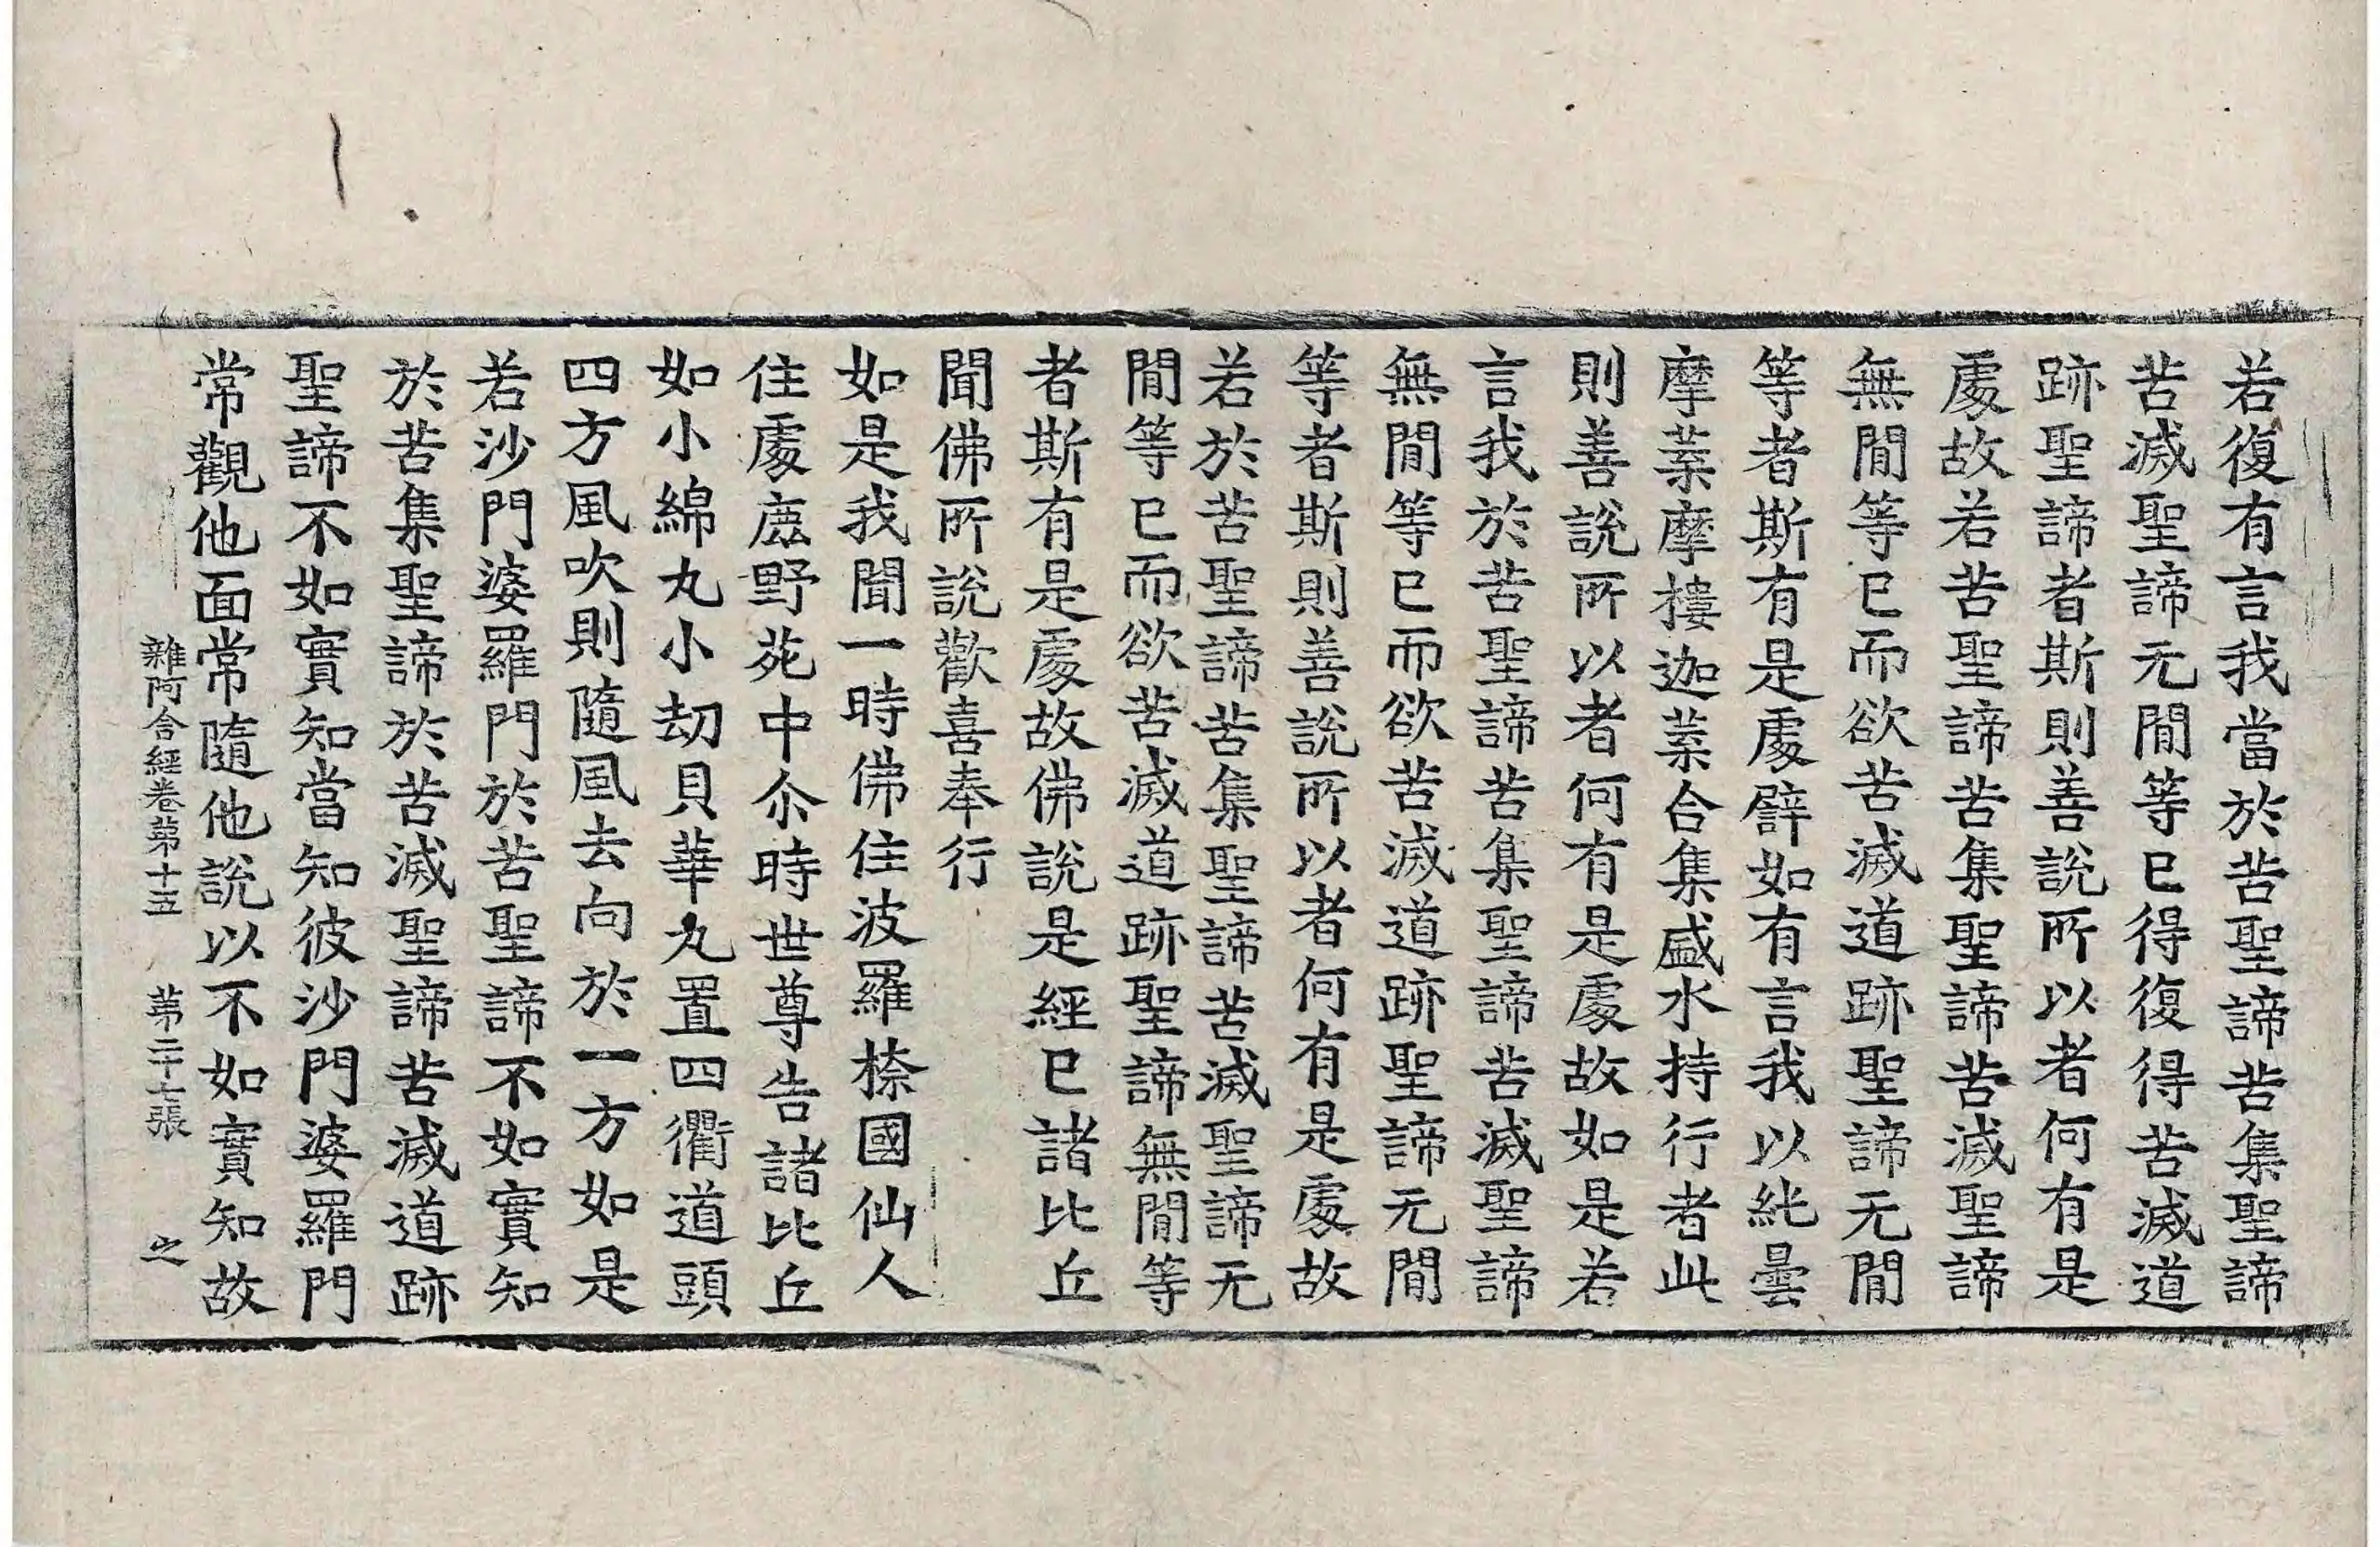 若復有言我當於苦聖諦苦集聖諦
苦滅聖諦无閒等已得復得苦滅道
跡聖諦者斯則善說所以者何有是
處故若苦聖諦苦集聖諦苦滅聖諦
無閒等已而欲苦滅道跡聖諦无閒
等者斯有是處譬如有言我以純曇
摩葉摩樓迦葉合集盛水持行者此
則善說所以者何有是處故如是若
言我於苦聖諦苦集聖諦苦滅聖諦
無閒等已而欲苦滅道跡聖諦无閒
等者斯則善說所以者何有是處故
若於苦聖諦苦集聖諦苦滅聖諦无
閒等已而欲苦滅道跡聖諦無閒等
者斯有是處故佛說是經已諸比丘
聞佛所說歡喜奉行
如是我聞一時佛住波羅㮈國仙人
住處鹿野苑中尒時世尊告諸比丘
如小綿丸小劫貝華丸置四衢道頭
四方風吹則隨風去向於一方如是
若沙門婆羅門於苦聖諦不如實知
於苦集聖諦於苦滅聖諦苦滅道跡
聖諦不如實知當知彼沙門婆羅門
常觀他面常隨他說以不如實知故
雜阿含經卷第十五 第二十七張 之